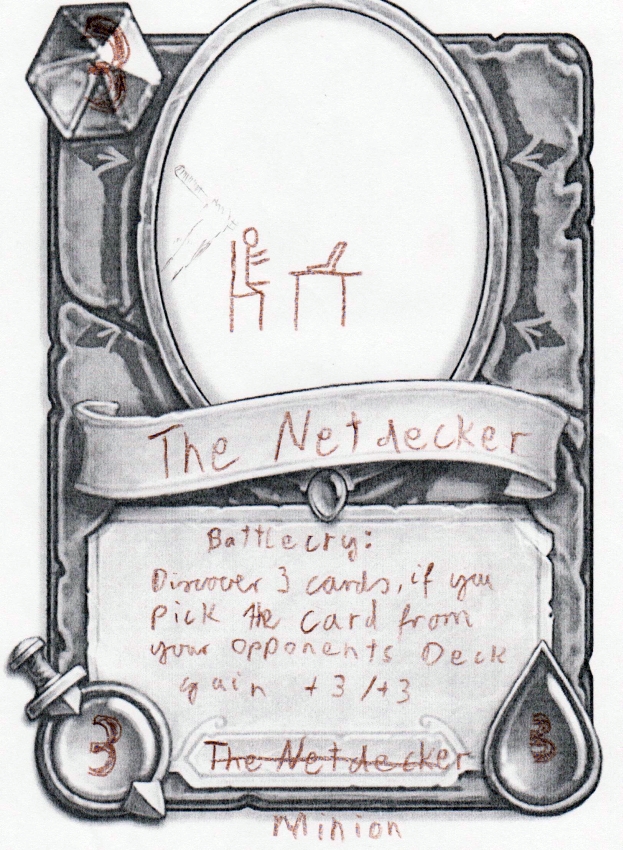 3
The Netdecker
Battlecry:
Discover 3 cards, if you
pick the card from
your opponents Deck
gain +3/+3
3
The Netdecker
3
Minion